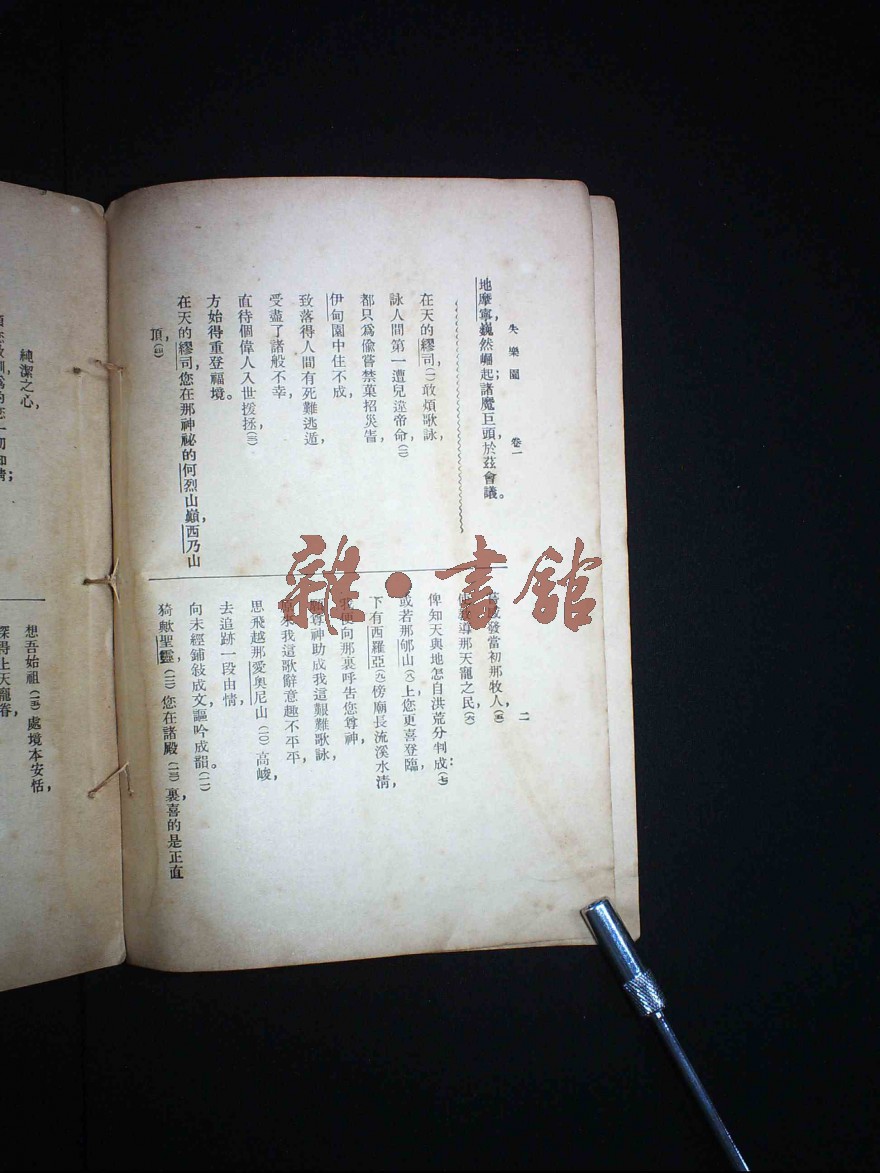 失樂園 卷一
二
地摩寧，巍然崛起；諸魔巨頭，於茲會議。
在天的繆司，(一)敢煩歌詠，
詠人間第一遭兒違帝命，(二)
都只爲偸嘗禁菓招災眚，
伊甸園中住不成，
致落得人間有死難逃遁，
受盡了諸般不幸，
直待個偉人入世援拯，(三)
方始得重登福境。
在天的繆司，您在那神祕的何烈山巔，西乃山
頂，(四)
發當初那牧人，(五)
教導那天寵之民，(六)
俾知天與地怎自洪荒分判成：(七)
或若那郇山(八)上您更喜登臨，
下有西羅亞(九)傍廟長流溪水淸，
我便向那裏呼告您尊神，
願尊神助成我這艱難歌詠，
原來我這歌辭意趣不平平，
思飛越那愛奧尼山(一〇)高峻，
去追跡一段由情，
向未經鋪敍成文，謳吟成韻。(一一)
猗歟聖靈，(一二)您在諸殿(一三)裏喜的是正直
純潔之心，
想吾始祖(一五)處境本安恬，
深得上天寵眷，
雜·書館